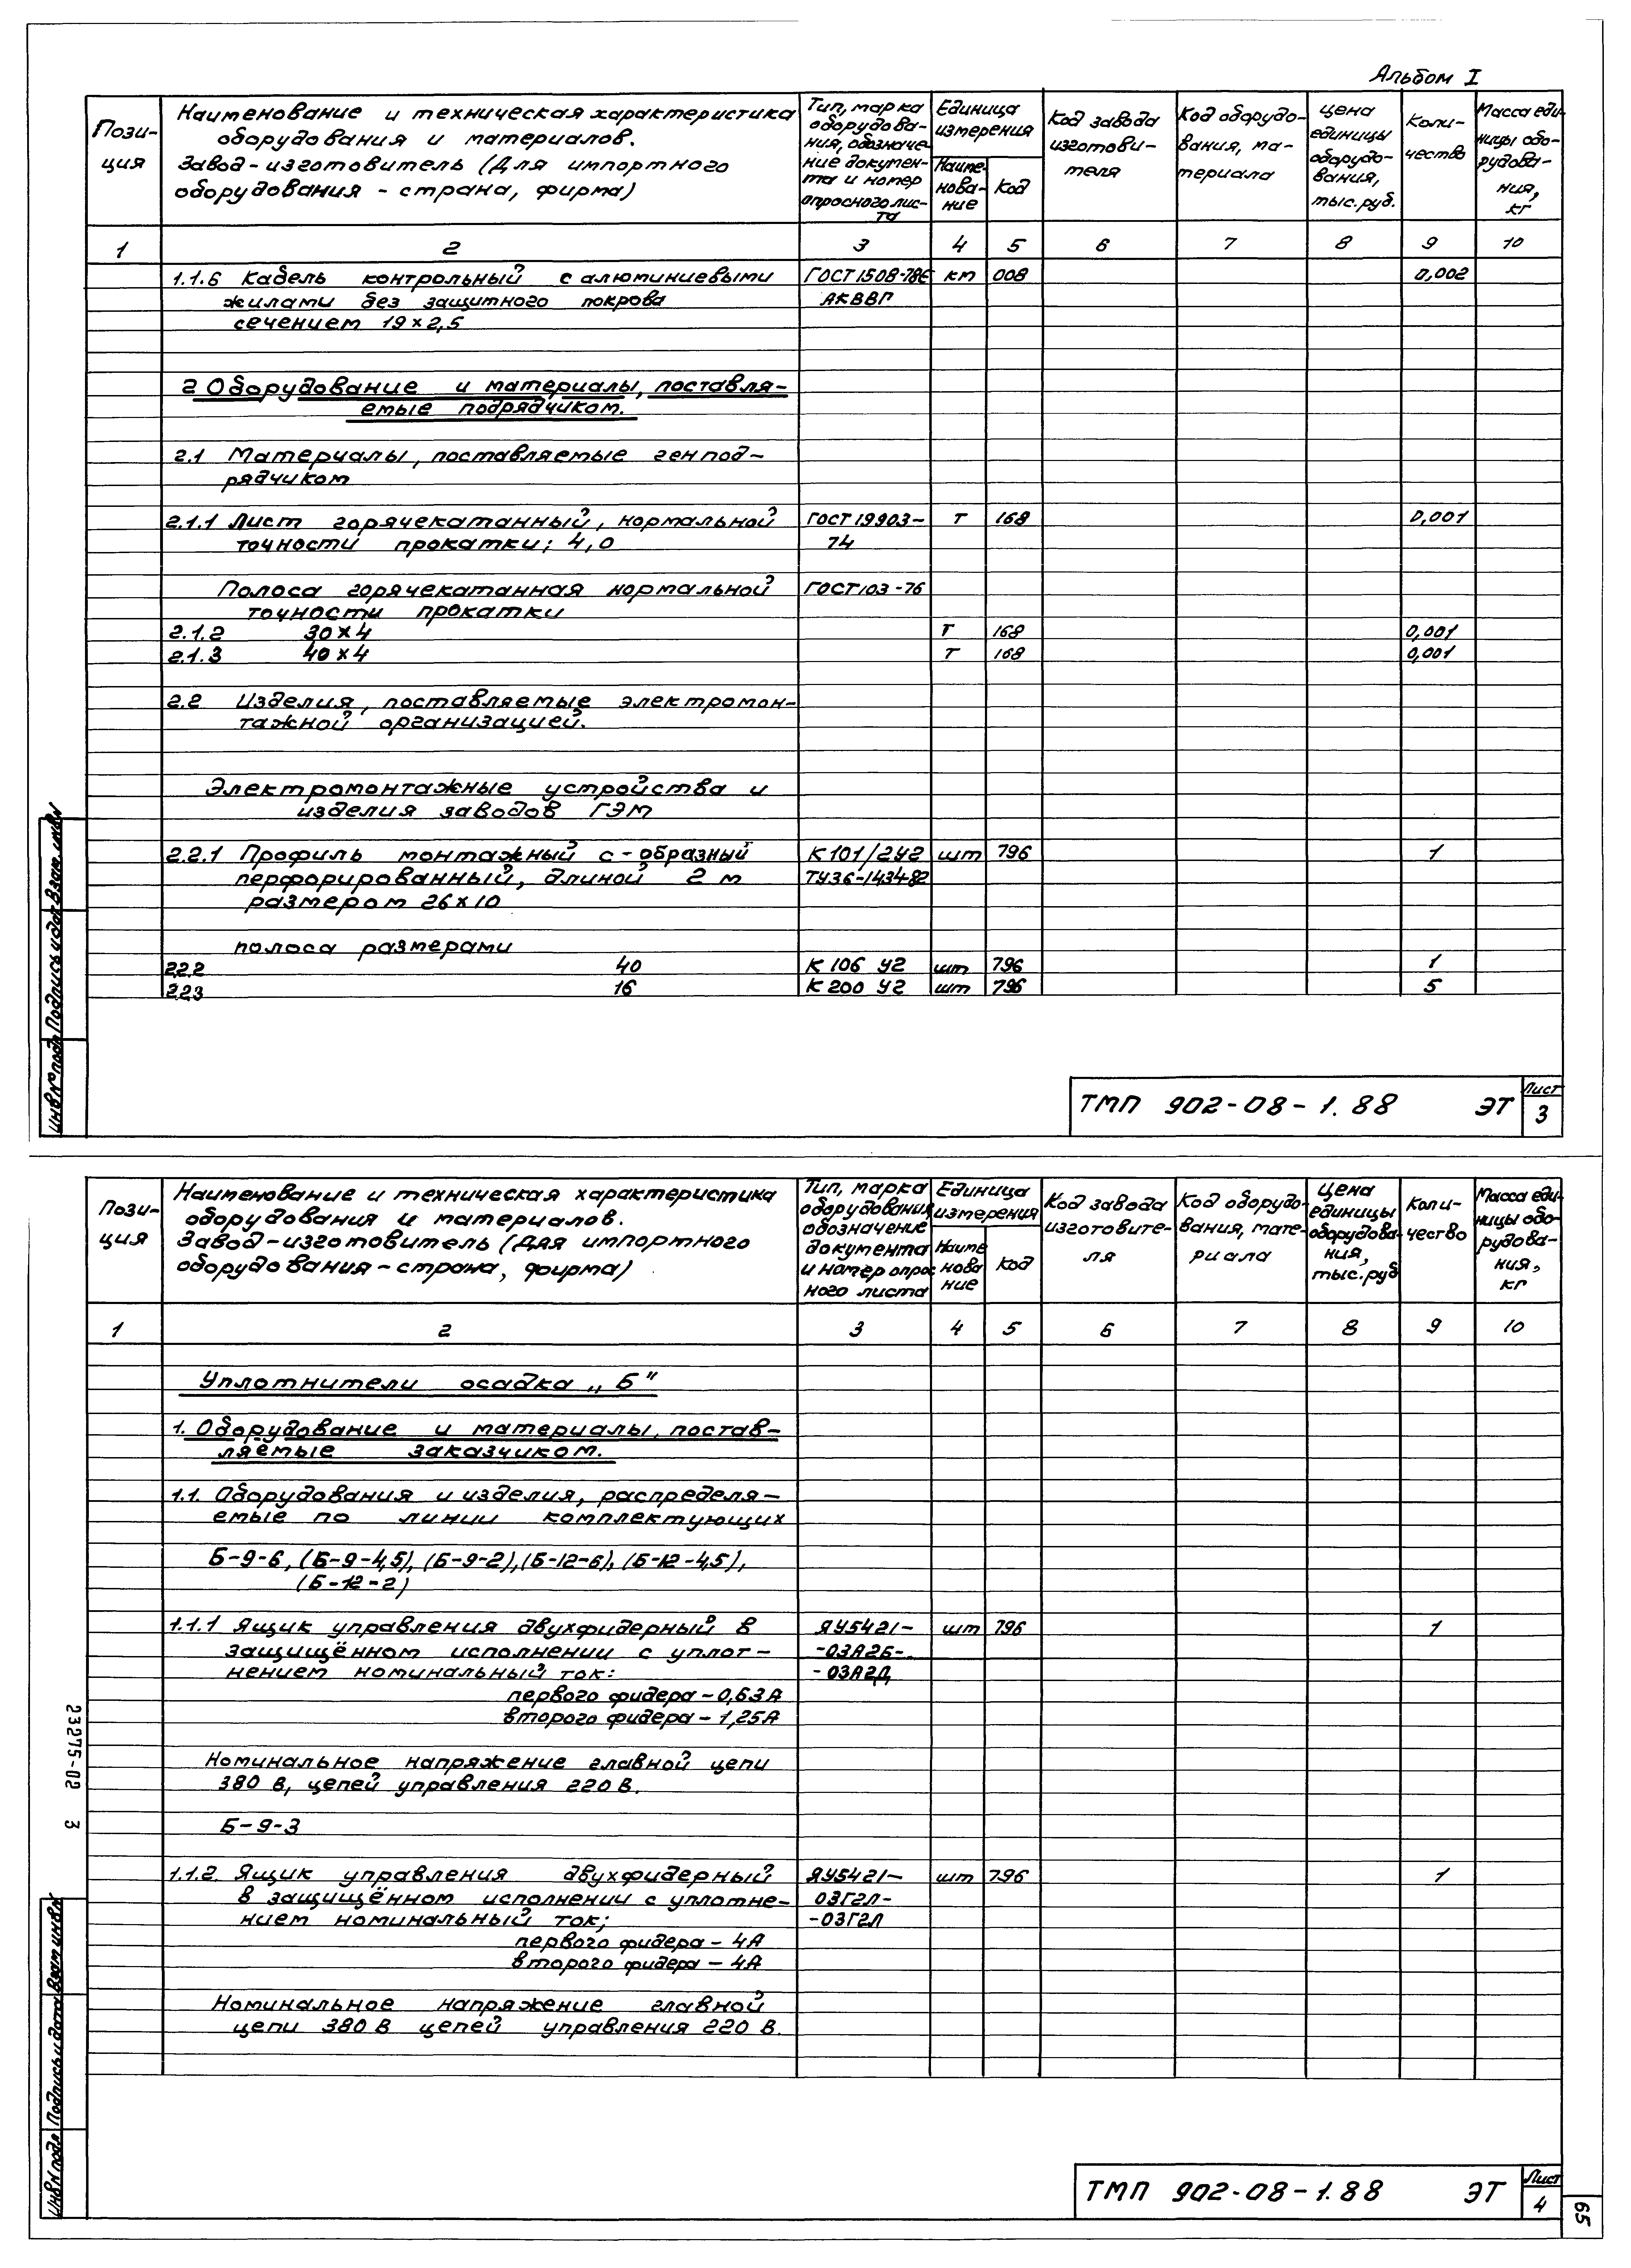 Альбом I
Пози-
ция
Наименование и техническая характеристика
оборудования и материалов.
Завод-изготовитель (Для импортного
оборудования - страна, фирма)
Тип, марка
оборудова-
ния, обозначе-
ние докумен-
та и номер
опросного лис-
та
Единица
измерения
Наиме-
нова-
ние
Код
Код завода
изготови-
теля
Код оборудо-
вания, ма-
териала
Цена
единицы
оборудо-
вания,
тыс. руб.
Коли-
чество
Масса еди-
ницы обо-
рудова-
ния,
кг
1 2 3 4 5 6 7 8 9 10
1.1.6 Кабель контрольный с алюминиевыми ГОСТ 1508-78Е км 008 0,002
жилами без защитного покрова АКВВГ
сечением 19×2,5
2 Оборудование и материалы, поставля-
емые подрядчиком.
2.1 Материалы, поставляемые генпод-
рядчиком
2.1.1 Лист горячекатанный, нормальной ГОСТ 19903- т 168 0,001
точности прокатки; 4,0 74
Полоса горячекатанная нормальной ГОСТ 103-76
точности прокатки
2.1.2 30×4 т 168 0,001
2.1.3 40×4 т 168 0,001
2.2 Изделия, поставляемые электромон-
тажной организацией.
Электромонтажные устройства и
изделия заводов ГЭМ
2.2.1 Профиль монтажный с-образный К101/2У2 шт 796 1
перфорированный, длиной 2 м ТУ36-1434-82
размером 26×10
полоса размерами
2.2.2 40 К 106 У2 шт 796 1
2.2.3 16 К 200 У2 шт 796 5
ТМП 902-08-1.88 ЭТ
Лист
3
Инв № подл Подпись и дата Взам. инв №
Пози-
ция
Наименование и техническая характеристика
оборудования и материалов.
Завод-изготовитель (Для импортного
оборудования-страна, фирма)
Тип, марка
оборудования,
обозначение
документа
и номер опрос
ного листа
Единица
измерения
Наиме
нова
ние
Код
Код завода
изготовите-
ля
Код оборудо-
вания, мате-
риала
Цена
единицы
оборудова-
ния,
тыс. руб
Коли-
чество
Масса еди-
ницы обо-
рудова-
ния,
кг
1 2 3 4 5 6 7 8 9 10
Уплотнители осадка „Б"
1. Оборудование и материалы, постав-
ляемые заказчиком.
1.1. Оборудования и изделия, распределя-
емые по линии комплектующих
Б-9-6, (Б-9-4,5), (Б-9-2), (Б-12-6), (Б-12-4,5),
(Б-12-2)
1.1.1 Ящик управления двухфидерный в ЯУ5421- шт 796 1
защищённом исполнении с уплот- -03А2Б-
нением номинальный ток: -03А2Д
первого фидера-0,63А
второго фидера-1,25А
Номинальное напряжение главной цепи
380 В, цепей управления 220 В.
Б-9-3
1.1.2. Ящик управления двухфидерный ЯУ5421- шт 796 1
в защищённом исполнении с уплотне- 03Г2Л-
нием номинальный ток; -03Г2Л
первого фидера - 4А
второго фидера - 4А
Номинальное напряжение главной
цепи 380 В цепей управления 220 В.
ТМП 902-08-1.88 ЭТ
Лист
4
23275-02 3
Инв № подл Подпись и дата Взам инв №
65